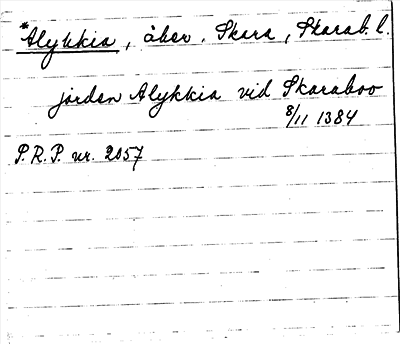 *Alykkia, åker. Skara, Skarab. l.
jorden Alykkia vid Skaraboo
8/11 1384
P.R.P. nr. 2057